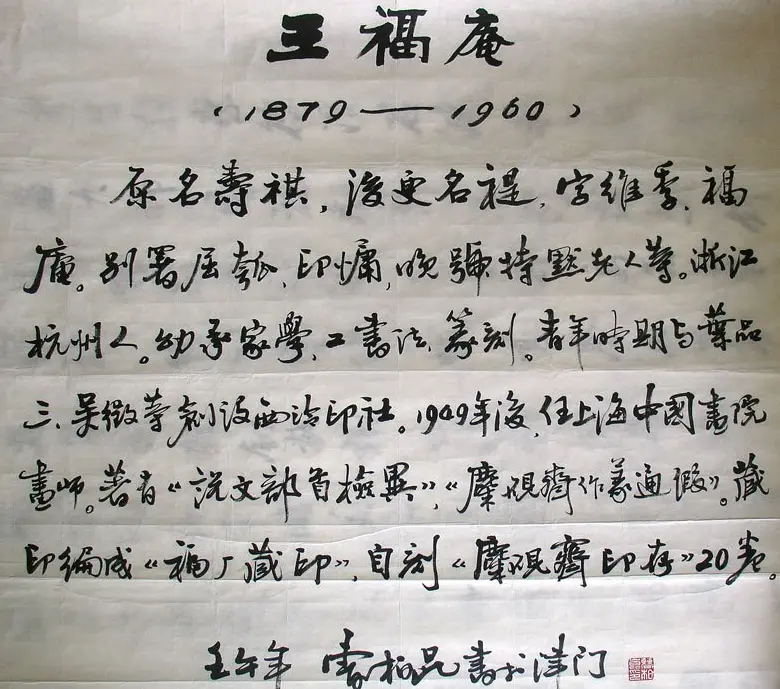 王福庵
(1879——1960)
原名壽祺,後更名禔,字維季、福
庵。别署屈瓠、印傭,晚號持默老人等。浙江
杭州人。幼承家學,工書法、篆刻。青年時期与葉品
三、吴微等創设西泠印社。1949年後,任上海中國畫院
畫师。著有《説文部首檢異》,《麋硯齋作篆通假》。藏
印編成《福厂藏印》,自刻《麋硯齋印存》20卷。
壬午年 柏昆書於津门